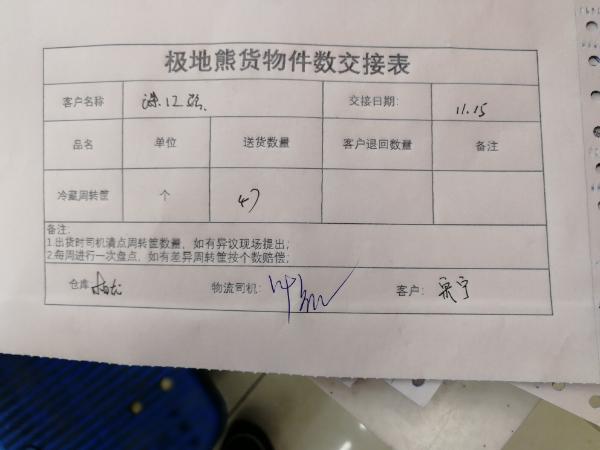 极地熊货物件数交接表
客户名称 滦江路 交接日期: 11.15
品名 单位 送货数量 客户退回数量 备注
冷藏周转筐 个 47
备注:
1.出货时司机清点周转筐数量，如有异议现场提出;
2.每周进行一次盘点，如有差异周转筐按个数赔偿;
仓库: 物流司机: 客户: